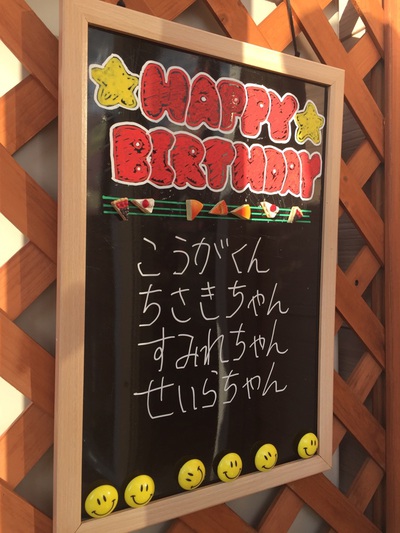 HAPPY
BIRTHDAY
こうがくん
ちさきちゃん
すみれちゃん
せいらちゃん